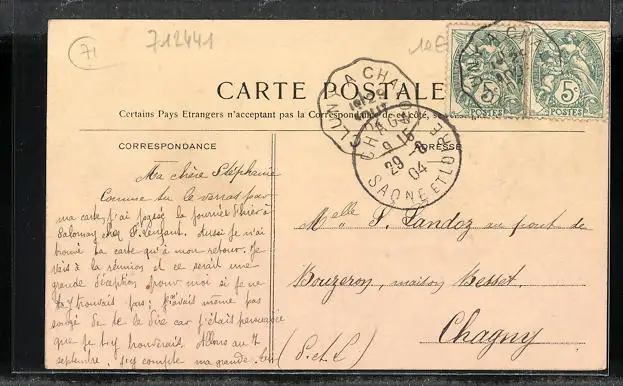 71
712441
CARTE POSTALE
Certains Pays Etrangers n'acceptant pas la Correspondance de ce côté, se
CORRESPONDANCE
ADRESSE
CLUNY A CHA
CHAGNY
9 15
29 -8
04
SAONE ET LOIRE
5c
POSTES
5c
POSTES
Ma chère Stéphanie
Comme tu le verras par
ma carte, j'ai passé la journée d'hier à
Salornay chez aussi je n'ai
trouvé ta carte qu'à mon retour. Je
vais à la réunion et ce serait une
grande déception pour moi si je ne
t'y trouvais pas; j'avais même pas
songé de te le dire car j'étais persuadée
que je t'y trouverais. Allons au 7
septembre. j'y compte ma grande.
Melle S. Landoz au pont de
Bouzeron, maison Besset.
Chagny
(S. et L)